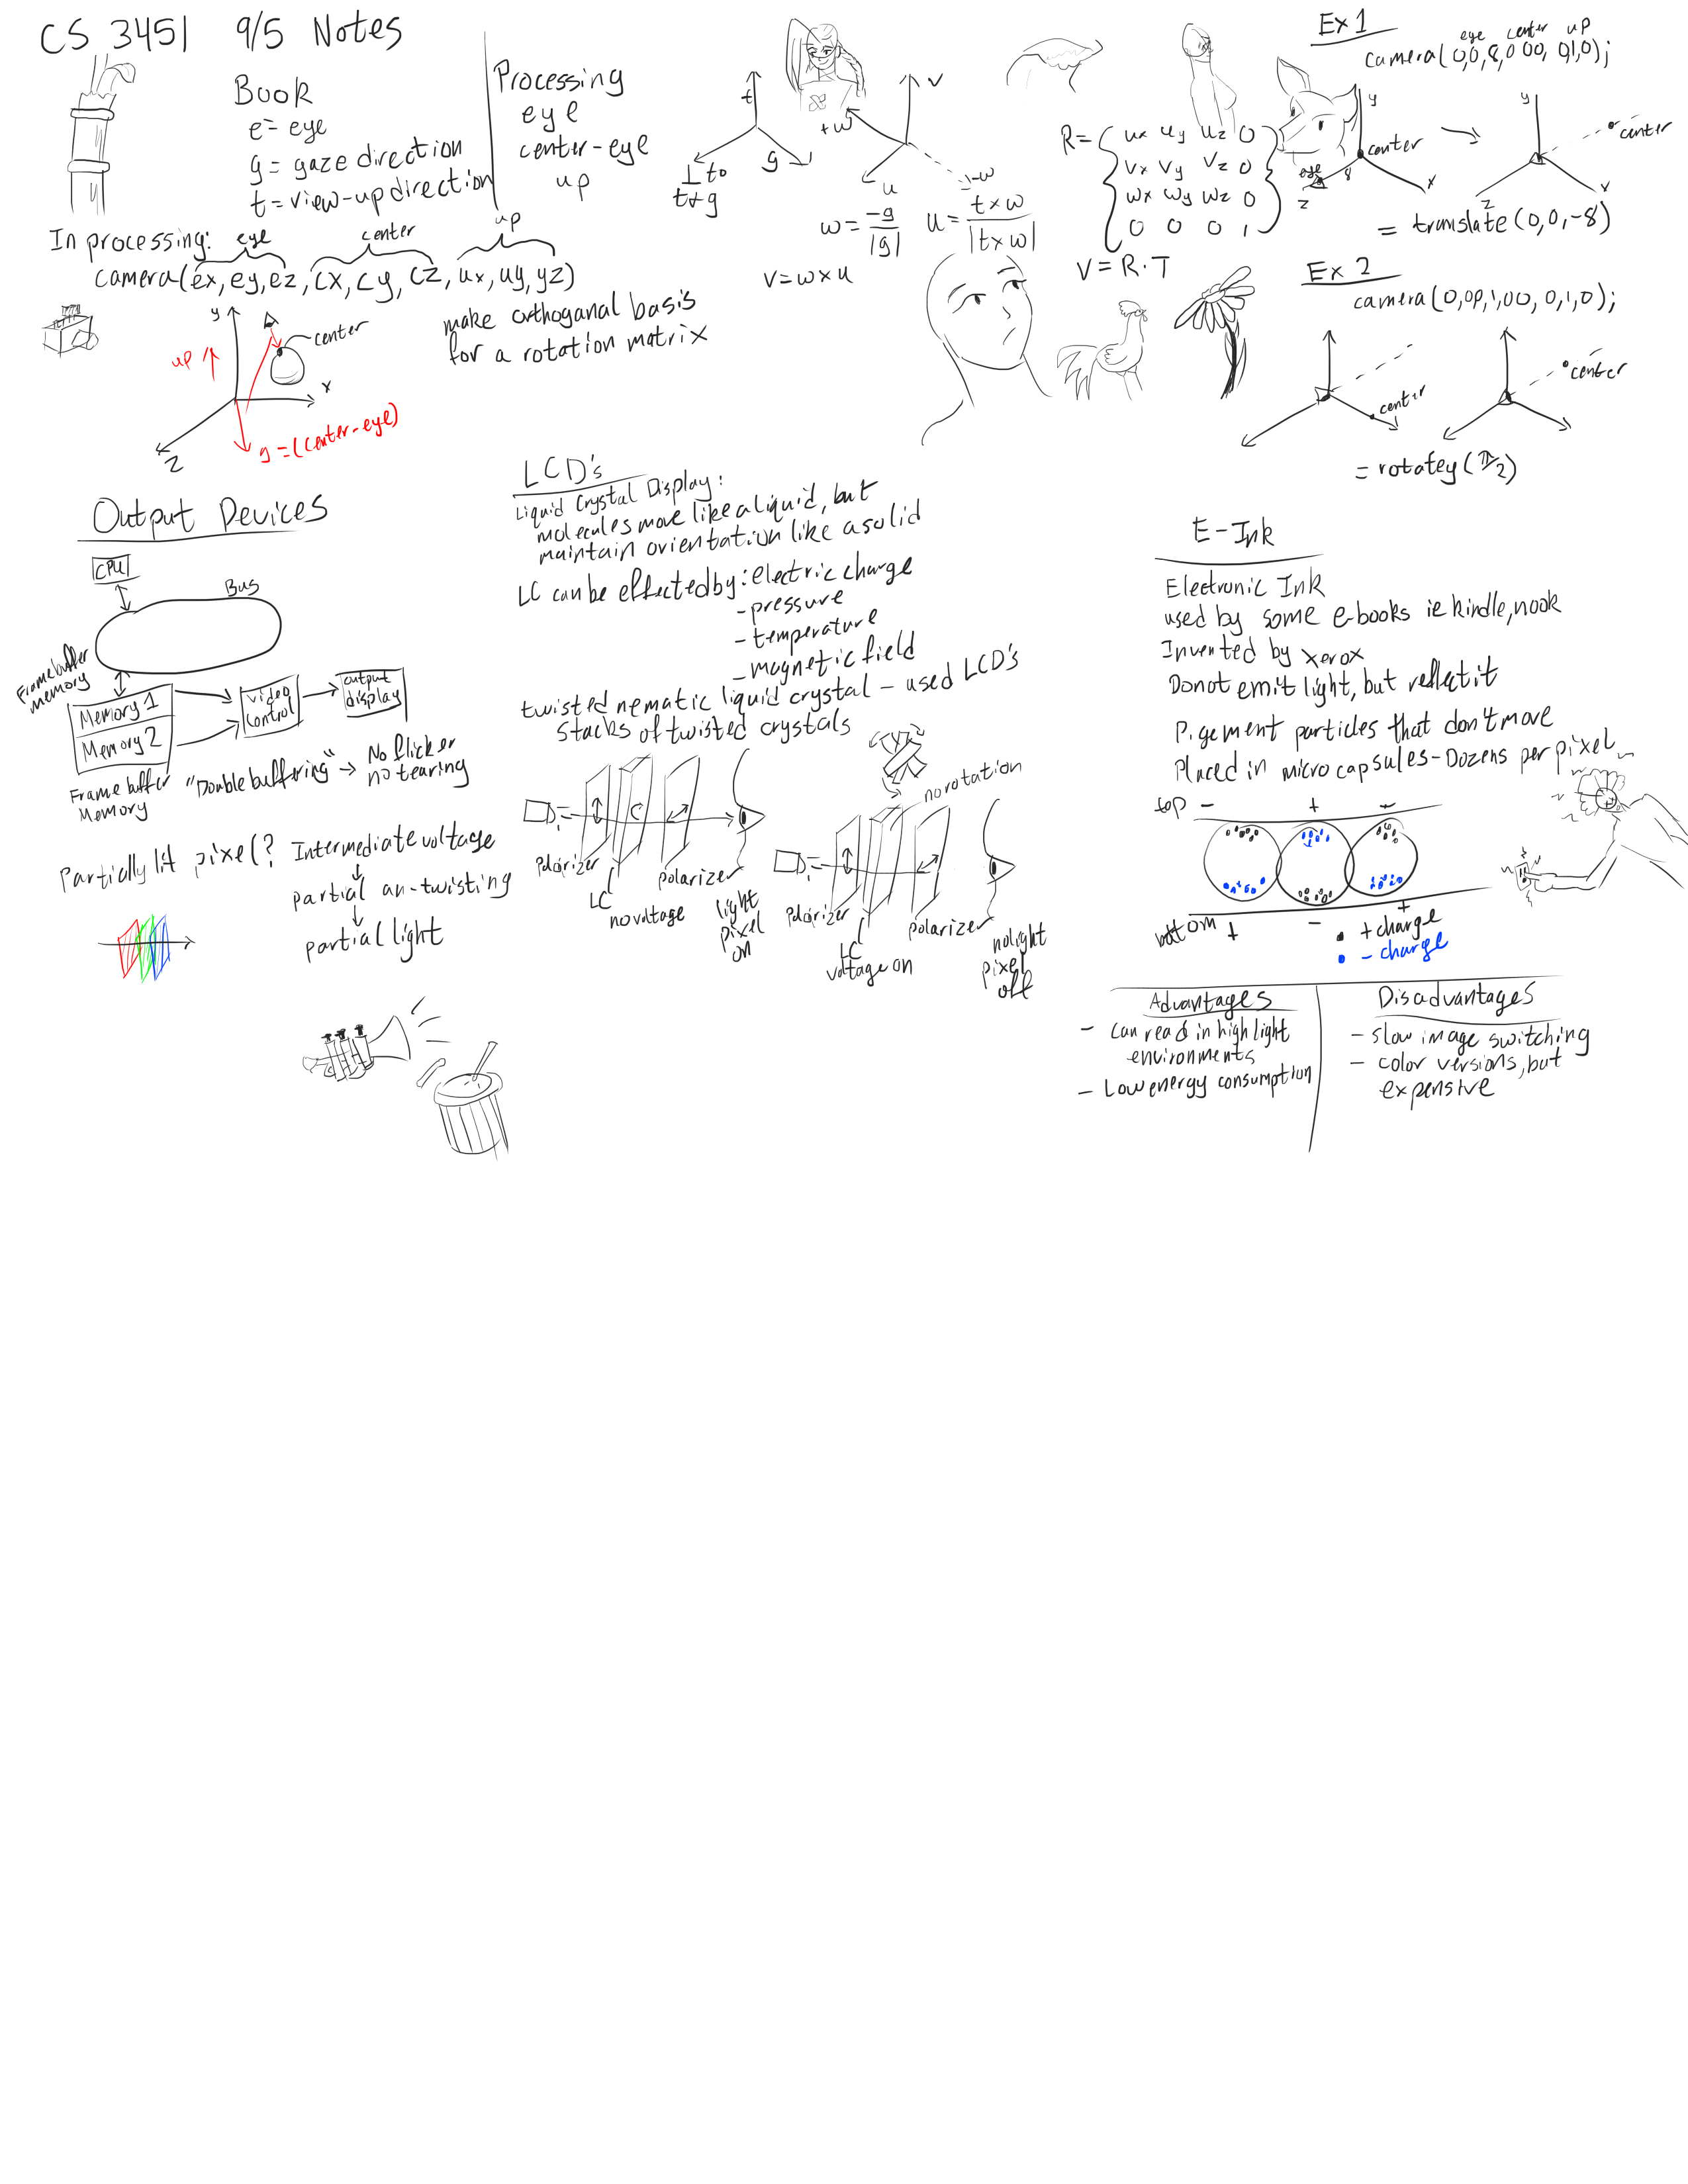 CS 3451 9/5 Notes
Book
e = eye
g = gaze direction
t = view-up direction
Processing
eye
center-eye
up
In processing:
eye
center
up
camera(ex, ey, ez, cx, cy, cz, ux, uy, yz)
make orthoganal basis
for a rotation matrix
y
up
center
x
z
g=(center-eye)
t
⊥ to
t & g
g
v
+w
u
-w
w = -g/|g|
u = t×w/|t×w|
v = w×u
R=
ux uy uz 0
vx vy vz 0
wx wy wz 0
0 0 0 1
V = R·T
Ex 1
eye center up
camera(0,0,8,000, 0,1,0);
y
center
eye
8
z
x
y
center
z
x
= translate(0,0,-8)
Ex 2
camera(0,00,1,00, 0,1,0);
center
center
= rotatey(π/2)
Output Devices
CPU
Bus
Frame buffer
memory
Memory 1
Memory 2
video
control
output
display
Frame buffer
Memory
"Double buffering" → No flicker
no tearing
Partially lit pixel?
Intermediate voltage
partial an-twisting
partial light
LCD's
Liquid Crystal Display:
molecules move like a liquid, but
maintain orientation like a solid
LC can be effected by: electric charge
- pressure
- temperature
- magnetic field
twisted nematic liquid crystal - used LCD's
Stacks of twisted crystals
polarizer
LC
no voltage
polarizer
light
pixel
on
no rotation
polarizer
LC
voltage on
polarizer
no light
pixel
off
E-Ink
Electronic Ink
used by some e-books ie kindle, nook
Invented by xerox
Do not emit light, but reflect it
Pigement particles that don't move
Placed in micro capsules - Dozens per pixel
top - + -
bottom + - +
+ charge
- charge
Advantages
- Can read in high light
environments
- Low energy consumption
Disadvantages
- slow image switching
- color versions, but
expensive